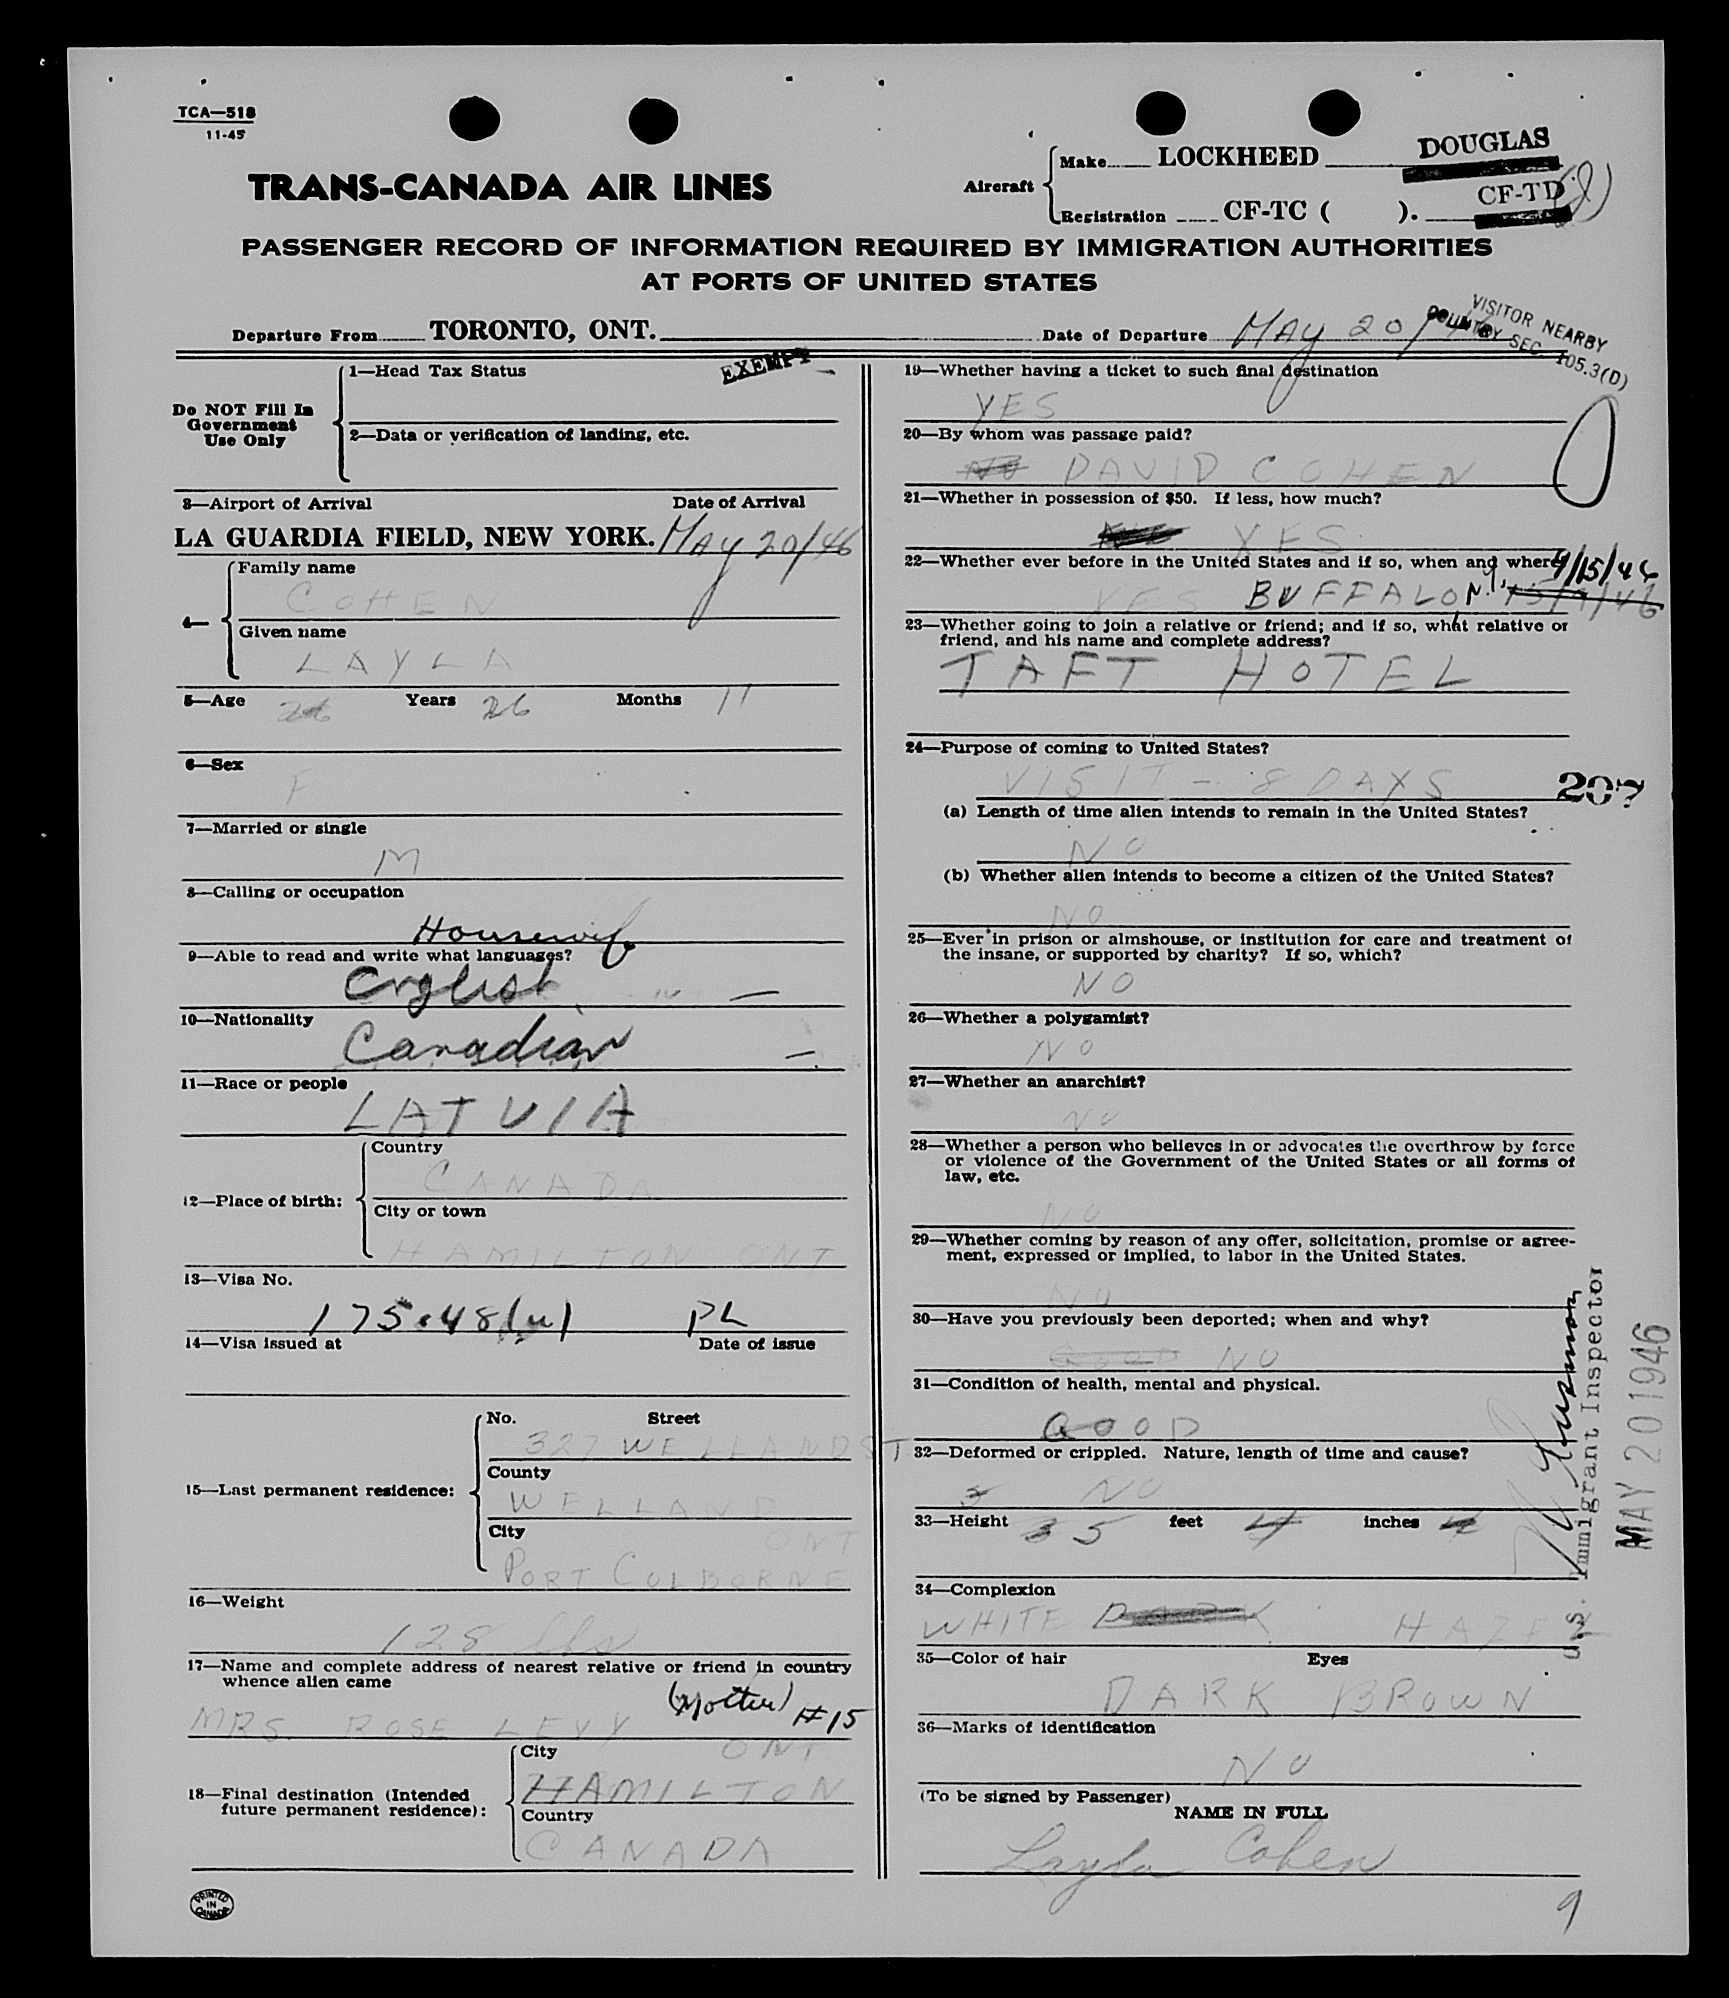 TCA—518
11-45
TRANS-CANADA AIR LINES
Aircraft
Make LOCKHEED DOUGLAS
Registration CF-TC ( ). CF-TD
PASSENGER RECORD OF INFORMATION REQUIRED BY IMMIGRATION AUTHORITIES
AT PORTS OF UNITED STATES
VISITOR NEARBY
COUNTRY SEC. 105.3(D)
Departure From TORONTO, ONT. Date of Departure MAY 20/46
Do NOT Fill In
Government
Use Only
1—Head Tax Status EXEMPT
2—Data or verification of landing, etc.
3—Airport of Arrival Date of Arrival
LA GUARDIA FIELD, NEW YORK. MAY 20/46
4—
Family name
COHEN
Given name
LAYLA
5—Age 26 Years 26 Months 11
6—Sex
F
7—Married or single
M
8—Calling or occupation
Housewife
9—Able to read and write what languages?
English
10—Nationality
Canadian
11—Race or people
LATVIA
12—Place of birth:
Country
CANADA
City or town
HAMILTON ONT
13—Visa No.
175.48(u) PL
14—Visa issued at Date of issue
15—Last permanent residence:
No. Street
327 WELLAND ST
County
WELLAND
City
ONT
PORT COLBORNE
16—Weight
128 lbs
17—Name and complete address of nearest relative or friend in country
whence alien came
MRS. ROSE LEVY (Mother) #15
18—Final destination (Intended
future permanent residence):
City ONT
HAMILTON
Country
CANADA
PRINTED
IN
CANADA
19—Whether having a ticket to such final destination
YES
20—By whom was passage paid?
NO DAVID COHEN
21—Whether in possession of $50. If less, how much?
YES
22—Whether ever before in the United States and if so, when and where 4/15/46
YES BUFFALO, N.Y. 15/4/46
23—Whether going to join a relative or friend; and if so, what relative or
friend, and his name and complete address?
TAFT HOTEL
24—Purpose of coming to United States?
VISIT - 8 DAYS
207
(a) Length of time alien intends to remain in the United States?
NO
(b) Whether alien intends to become a citizen of the United States?
NO
25—Ever in prison or almshouse, or institution for care and treatment of
the insane, or supported by charity? If so, which?
NO
26—Whether a polygamist?
NO
27—Whether an anarchist?
NO
28—Whether a person who believes in or advocates the overthrow by force
or violence of the Government of the United States or all forms of
law, etc.
NO
29—Whether coming by reason of any offer, solicitation, promise or agree-
ment, expressed or implied, to labor in the United States.
NO
30—Have you previously been deported; when and why?
GOOD NO
31—Condition of health, mental and physical.
GOOD
32—Deformed or crippled. Nature, length of time and cause?
5 NO
33—Height 5 feet 4 inches 4
34—Complexion
WHITE DARK HAZEL
35—Color of hair Eyes
DARK BROWN
36—Marks of identification
NO
(To be signed by Passenger)
NAME IN FULL
Layla Cohen
9
U.S. Immigrant Inspector
MAY 20 1946